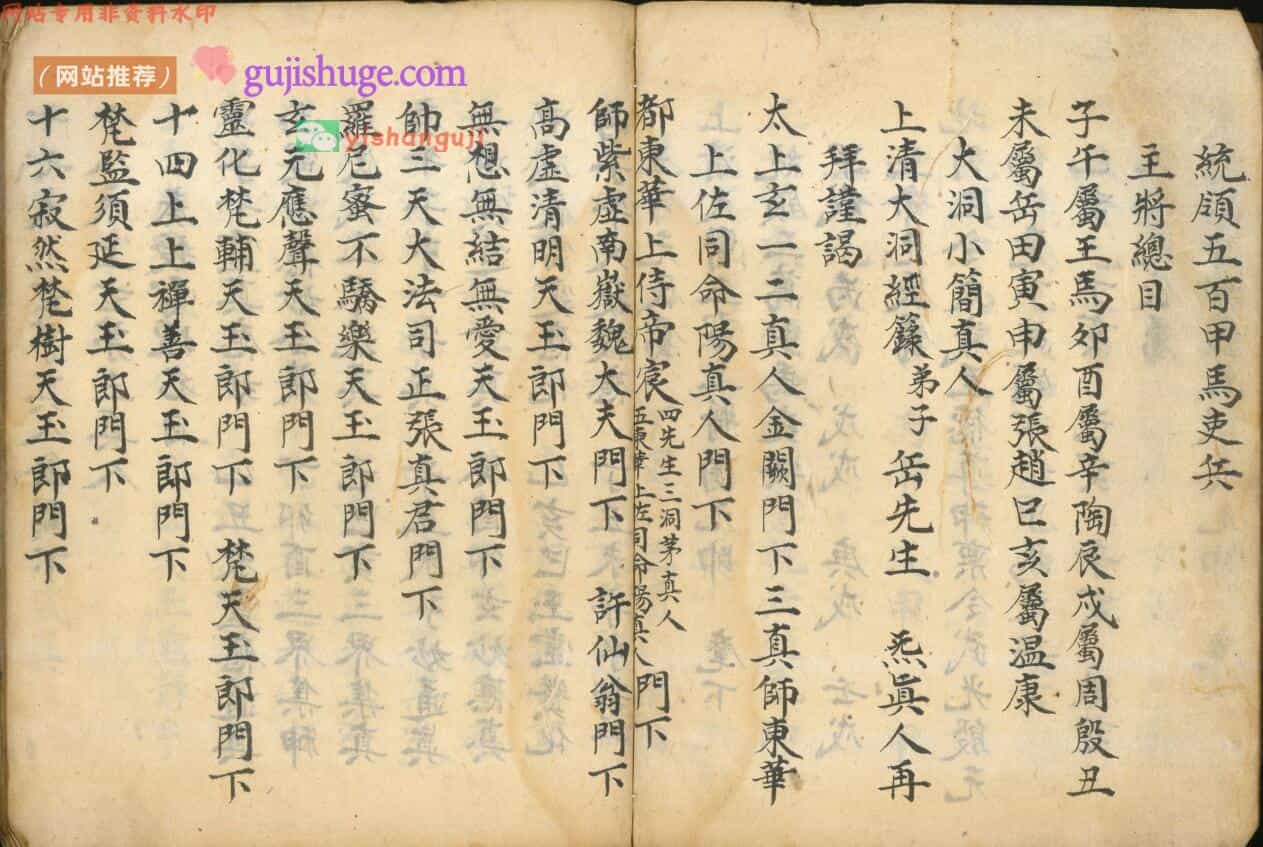 网站专用非资料水印
(网站推荐)
gujishuge.com
yishanguji
統領五百甲馬吏兵
主將總目
子午屬王馬夘酉屬辛陶辰戍屬周殷丑
未屬岳田寅申屬張趙巳亥屬溫康
大洞小簡真人
上清大洞經籙弟子岳先生 炁眞人再
拜謹謁
太上玄一二真人金闕門下三真師東華
上佐同命陽真人門下
都東華上侍帝宸四先生三洞茅真人五東華上佐同命陽真人門下
師紫虛南嶽魏大夫門下 許仙翁門下
高虛清明天玉郎門下
無想無結無愛天玉郎門下
帥三天大法司正張真君門下
羅尼蜜不驕樂天玉郎門下
玄元應聲天玉郎門下
靈化梵輔天玉郎門下 梵天玉郎門下
十四上上禪善天玉郎門下
梵監須延天玉郎門下
十六寂然梵樹天玉郎門下